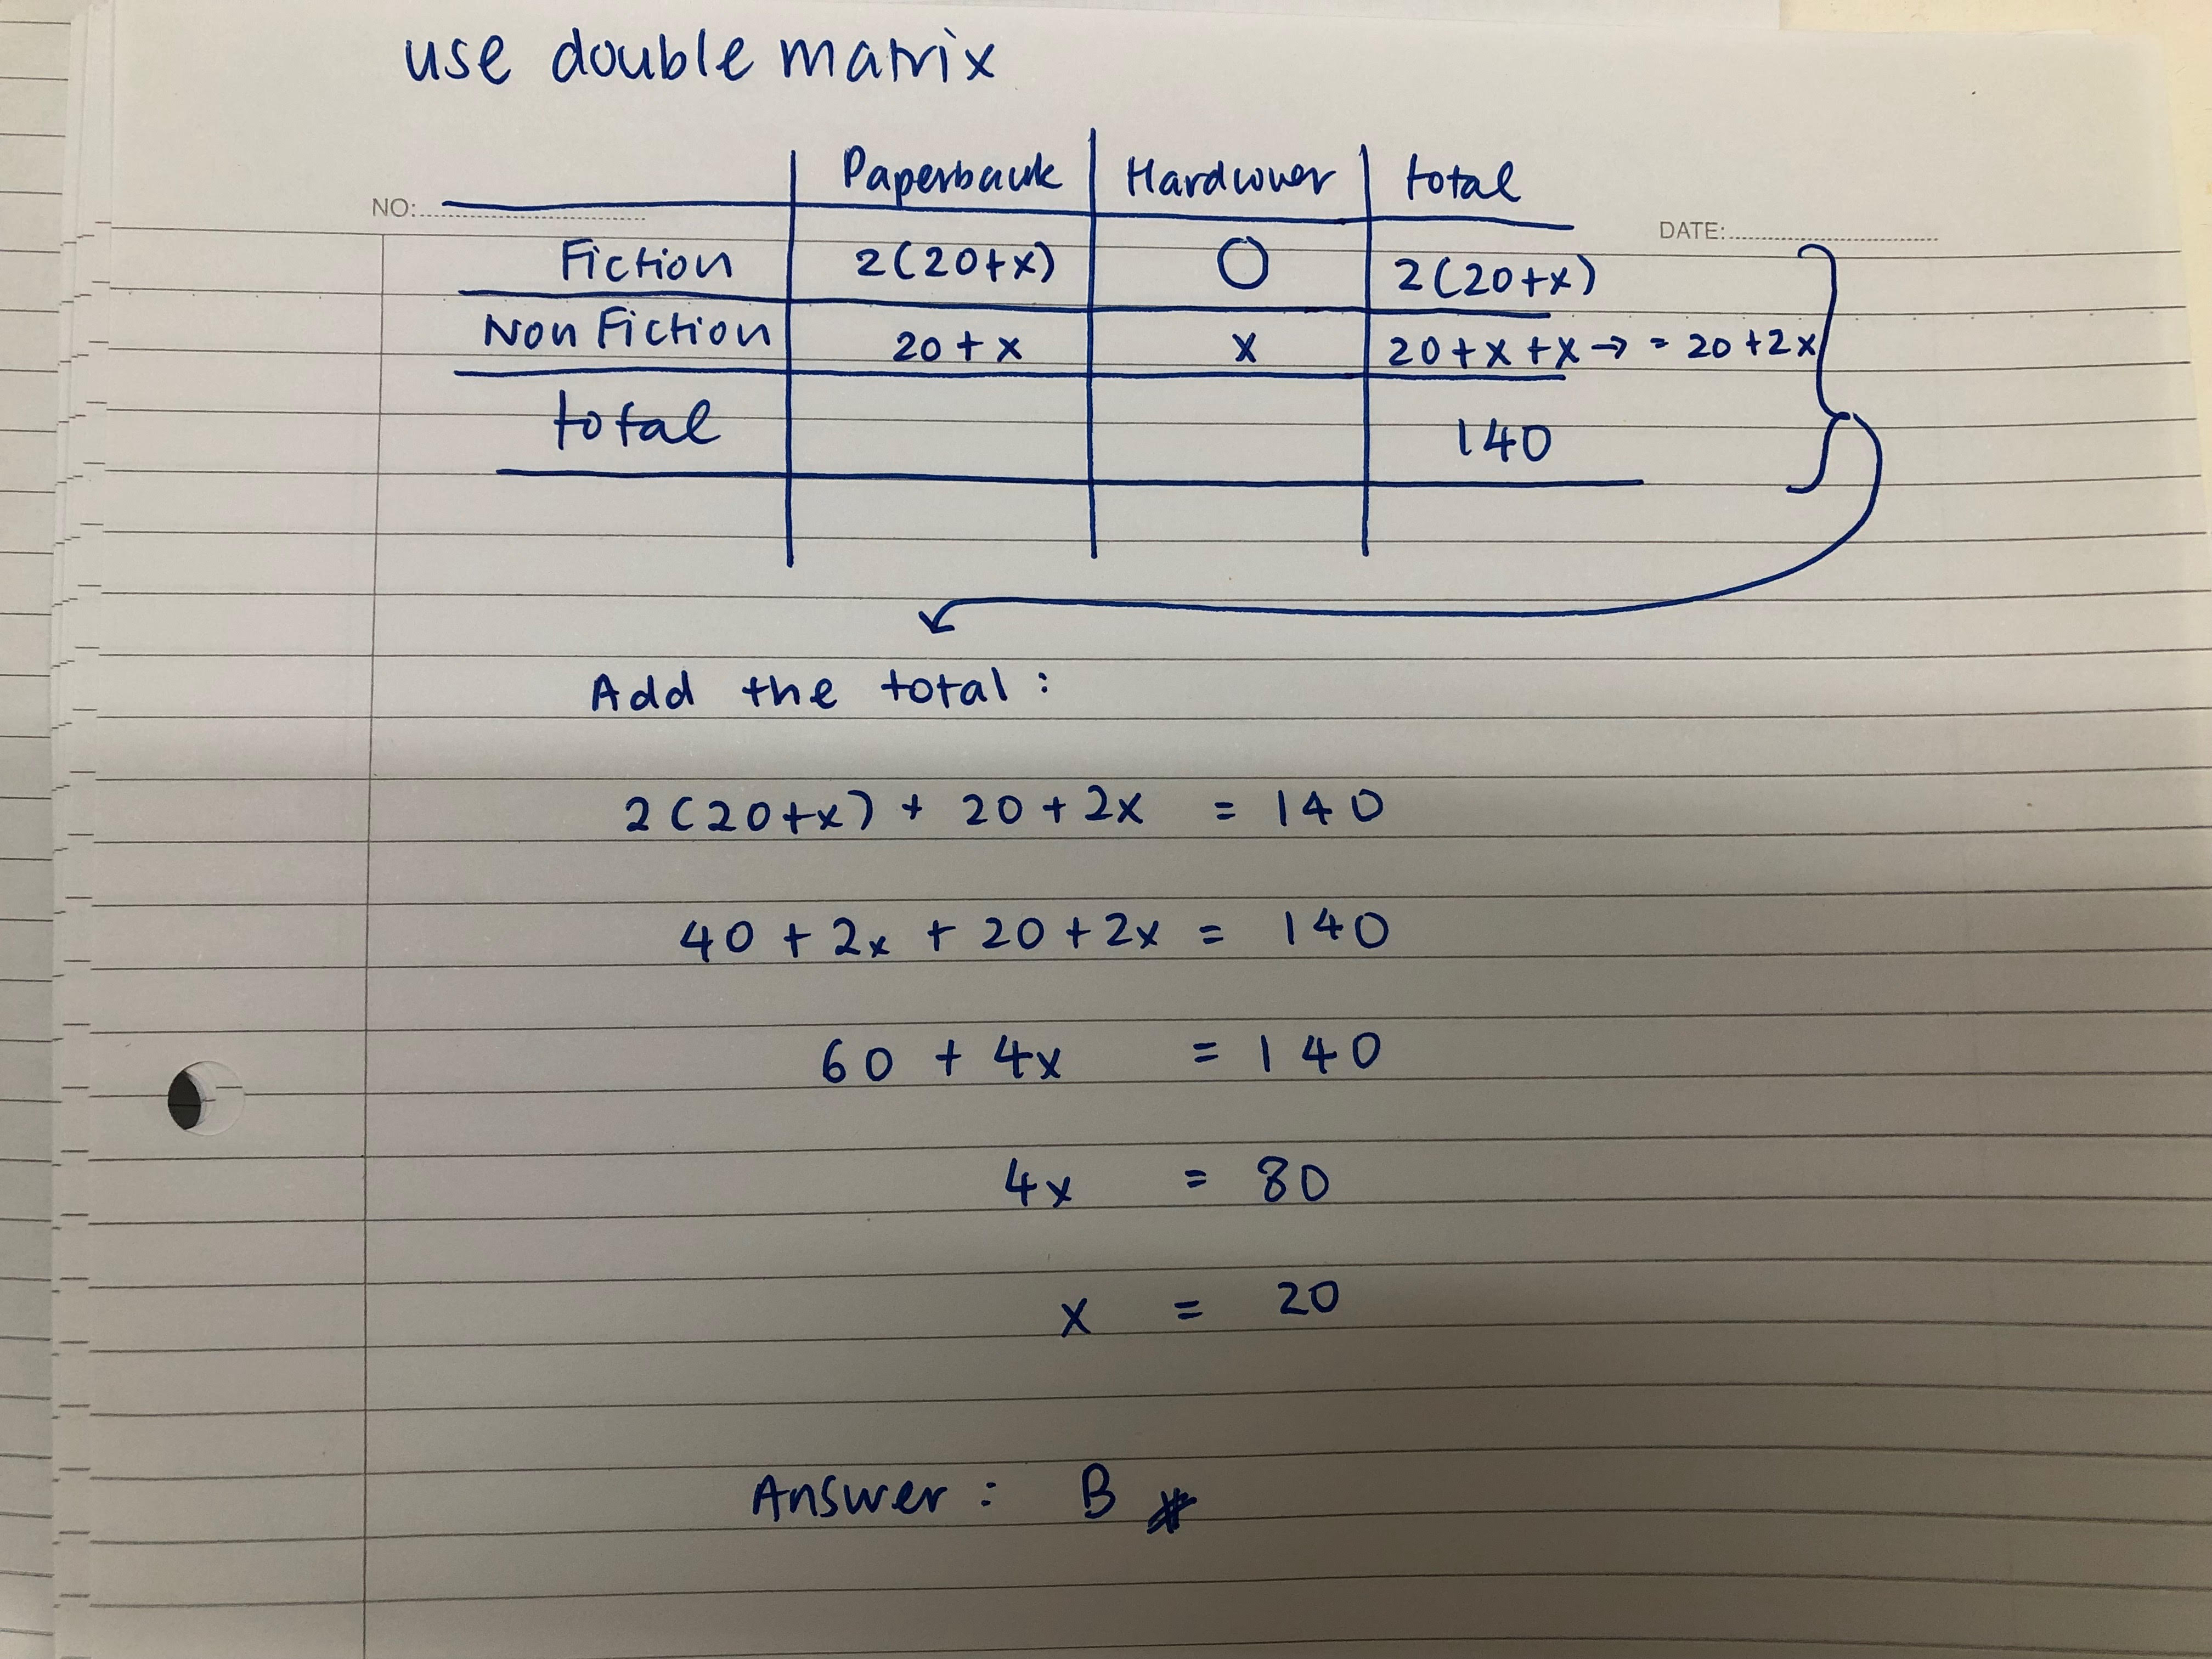 use double matrix
Paperback Hardcover total
NO: DATE:
Fiction 2(20+x) 0 2(20+x)
Non Fiction 20 + x x 20+x+x → = 20 +2x
total 140
Add the total :
2(20+x) + 20 + 2x = 140
40 + 2x + 20 + 2x = 140
60 + 4x = 140
4x = 80
x = 20
Answer : B #